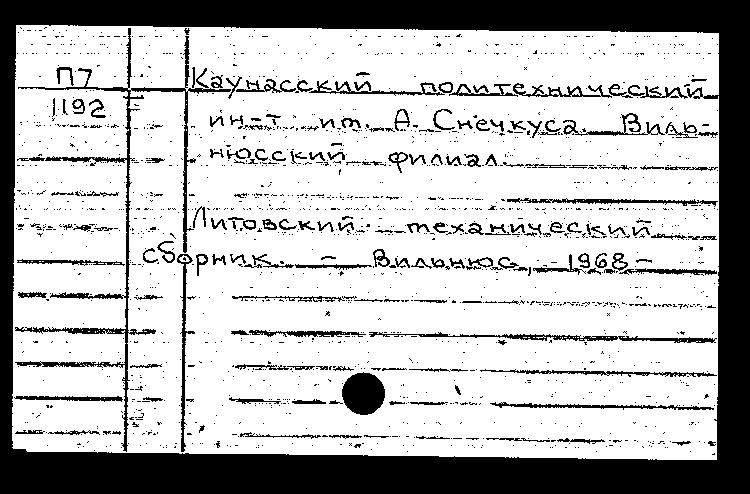 П7
1192
Каунасский политехнический
ин-т им. А. Снечкуса. Виль-
нюсский филиал.
Литовский механический
сборник. – Вильнюс, 1968–